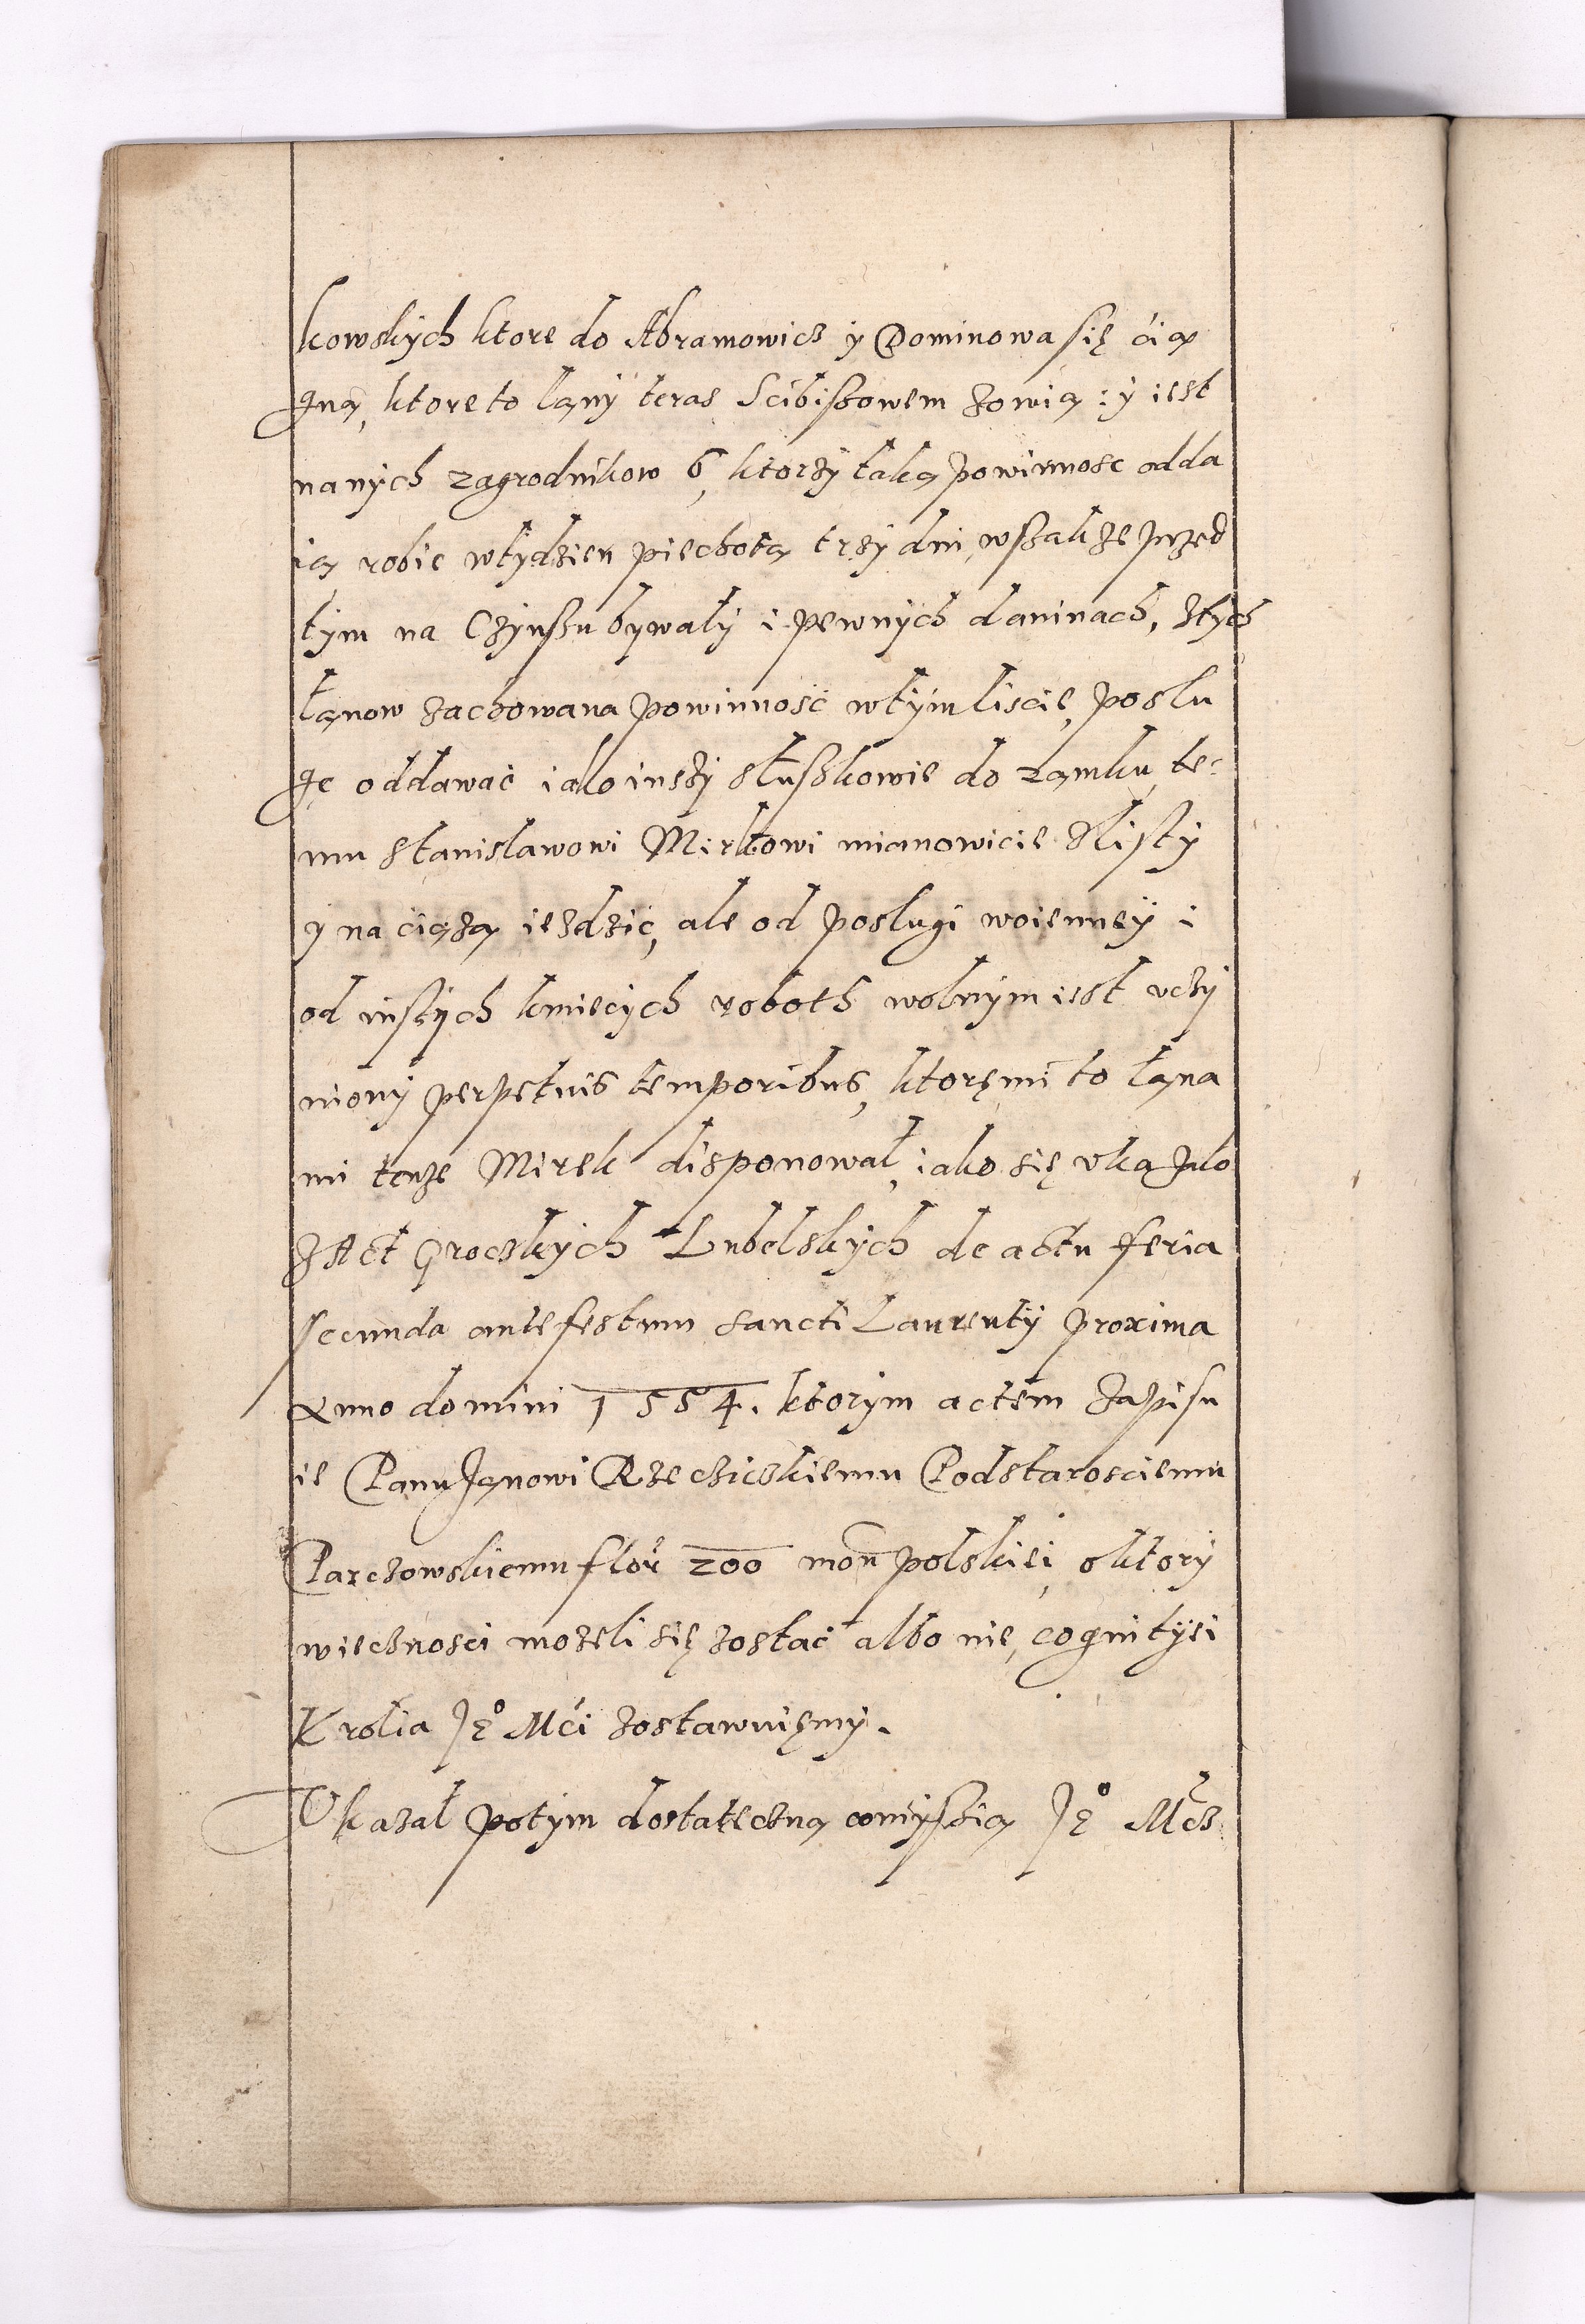 kowskych ktore do Abramowicz y Dominowa się cią
gną, ktore to ląny teras Scibiszowem zowią : y iest
na nych zagrodnikow 6, ktorzy taką powinnosc odda
ią robic w tydzien piechotą trzy dni, wszakze przed
tym na Czynszu bywały i pewnych daninach, z tych
łąnow zachowana powinnosc w tym liscie, poslu
gę oddawac iako inszy służkowie do ząmku, te:
mu Stanislawowi Mirkowi mianowicie z listy
y na ciążą iezdzic, ale od poslugi woienney i
od inszych kmiecych roboth wolnym iest uczy
niony perpetuis temporibus, ktoręmi to łąna
mi tenze Mirek disponował, iako się ukązało
z Act Groczkych Lubelskych de actu feria
secunda ante festum sancti Laurenty proxima
Anno domini 1554. ktorym actem zapisu
ie Panu Jąnowi Rzeczickiemu Podstarosciemu
Parczowskiemu flor 200 mon polskiei, o ktory
wiecznosci mozeli się zostac albo nie, cognityei
Krolia Jeº Mći zostawuięmy.
Ukazał potym dostateczną comyszią Jeº Mcz